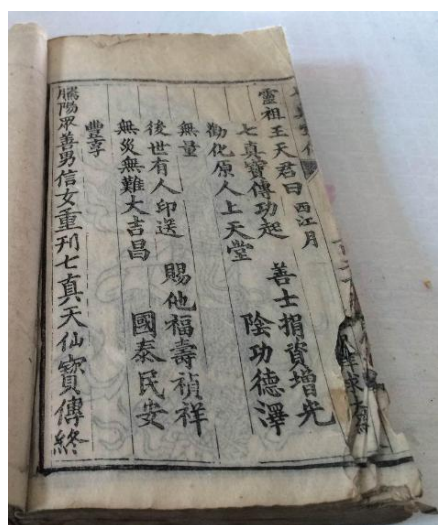 靈祖王天君曰 西江月
七真寶傳功起 善士捐資增光
勸化原人上天堂 陰功德澤
無量
後世有人印送 賜他福壽禎祥
無災無難大吉昌 國泰民安
豐享
騰陽眾善男信女重刊七真天仙寶傳終